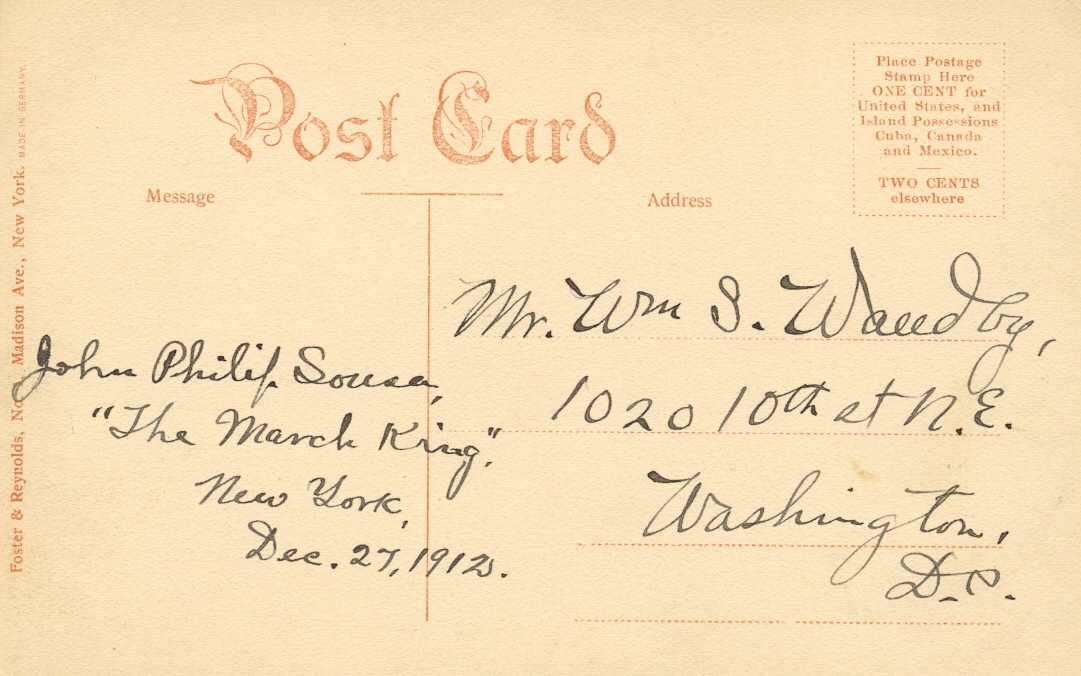 Post Card
Place Postage
Stamp Here
ONE CENT for
United States, and
Island Possessions
Cuba, Canada
and Mexico.
TWO CENTS
elsewhere
Message
Address
Foster & Reynolds, No. Madison Ave., New York. MADE IN GERMANY.
John Philip Sousa,
"The March King",
New York,
Dec. 27, 1912.
Mr. Wm S. Waudby,
1020 10th st N.E.
Washington,
D.C.